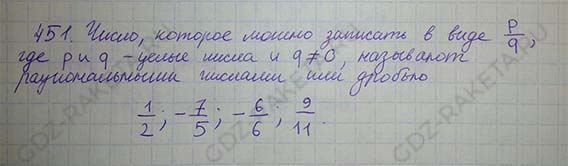 451. Число, которое можно записать в виде p/q,
где p и q - целые числа и q ≠ 0, называют
рациональными числами или дробью
1/2; -7/5; -6/6; 9/11.
GDZ-RAKETA.RU